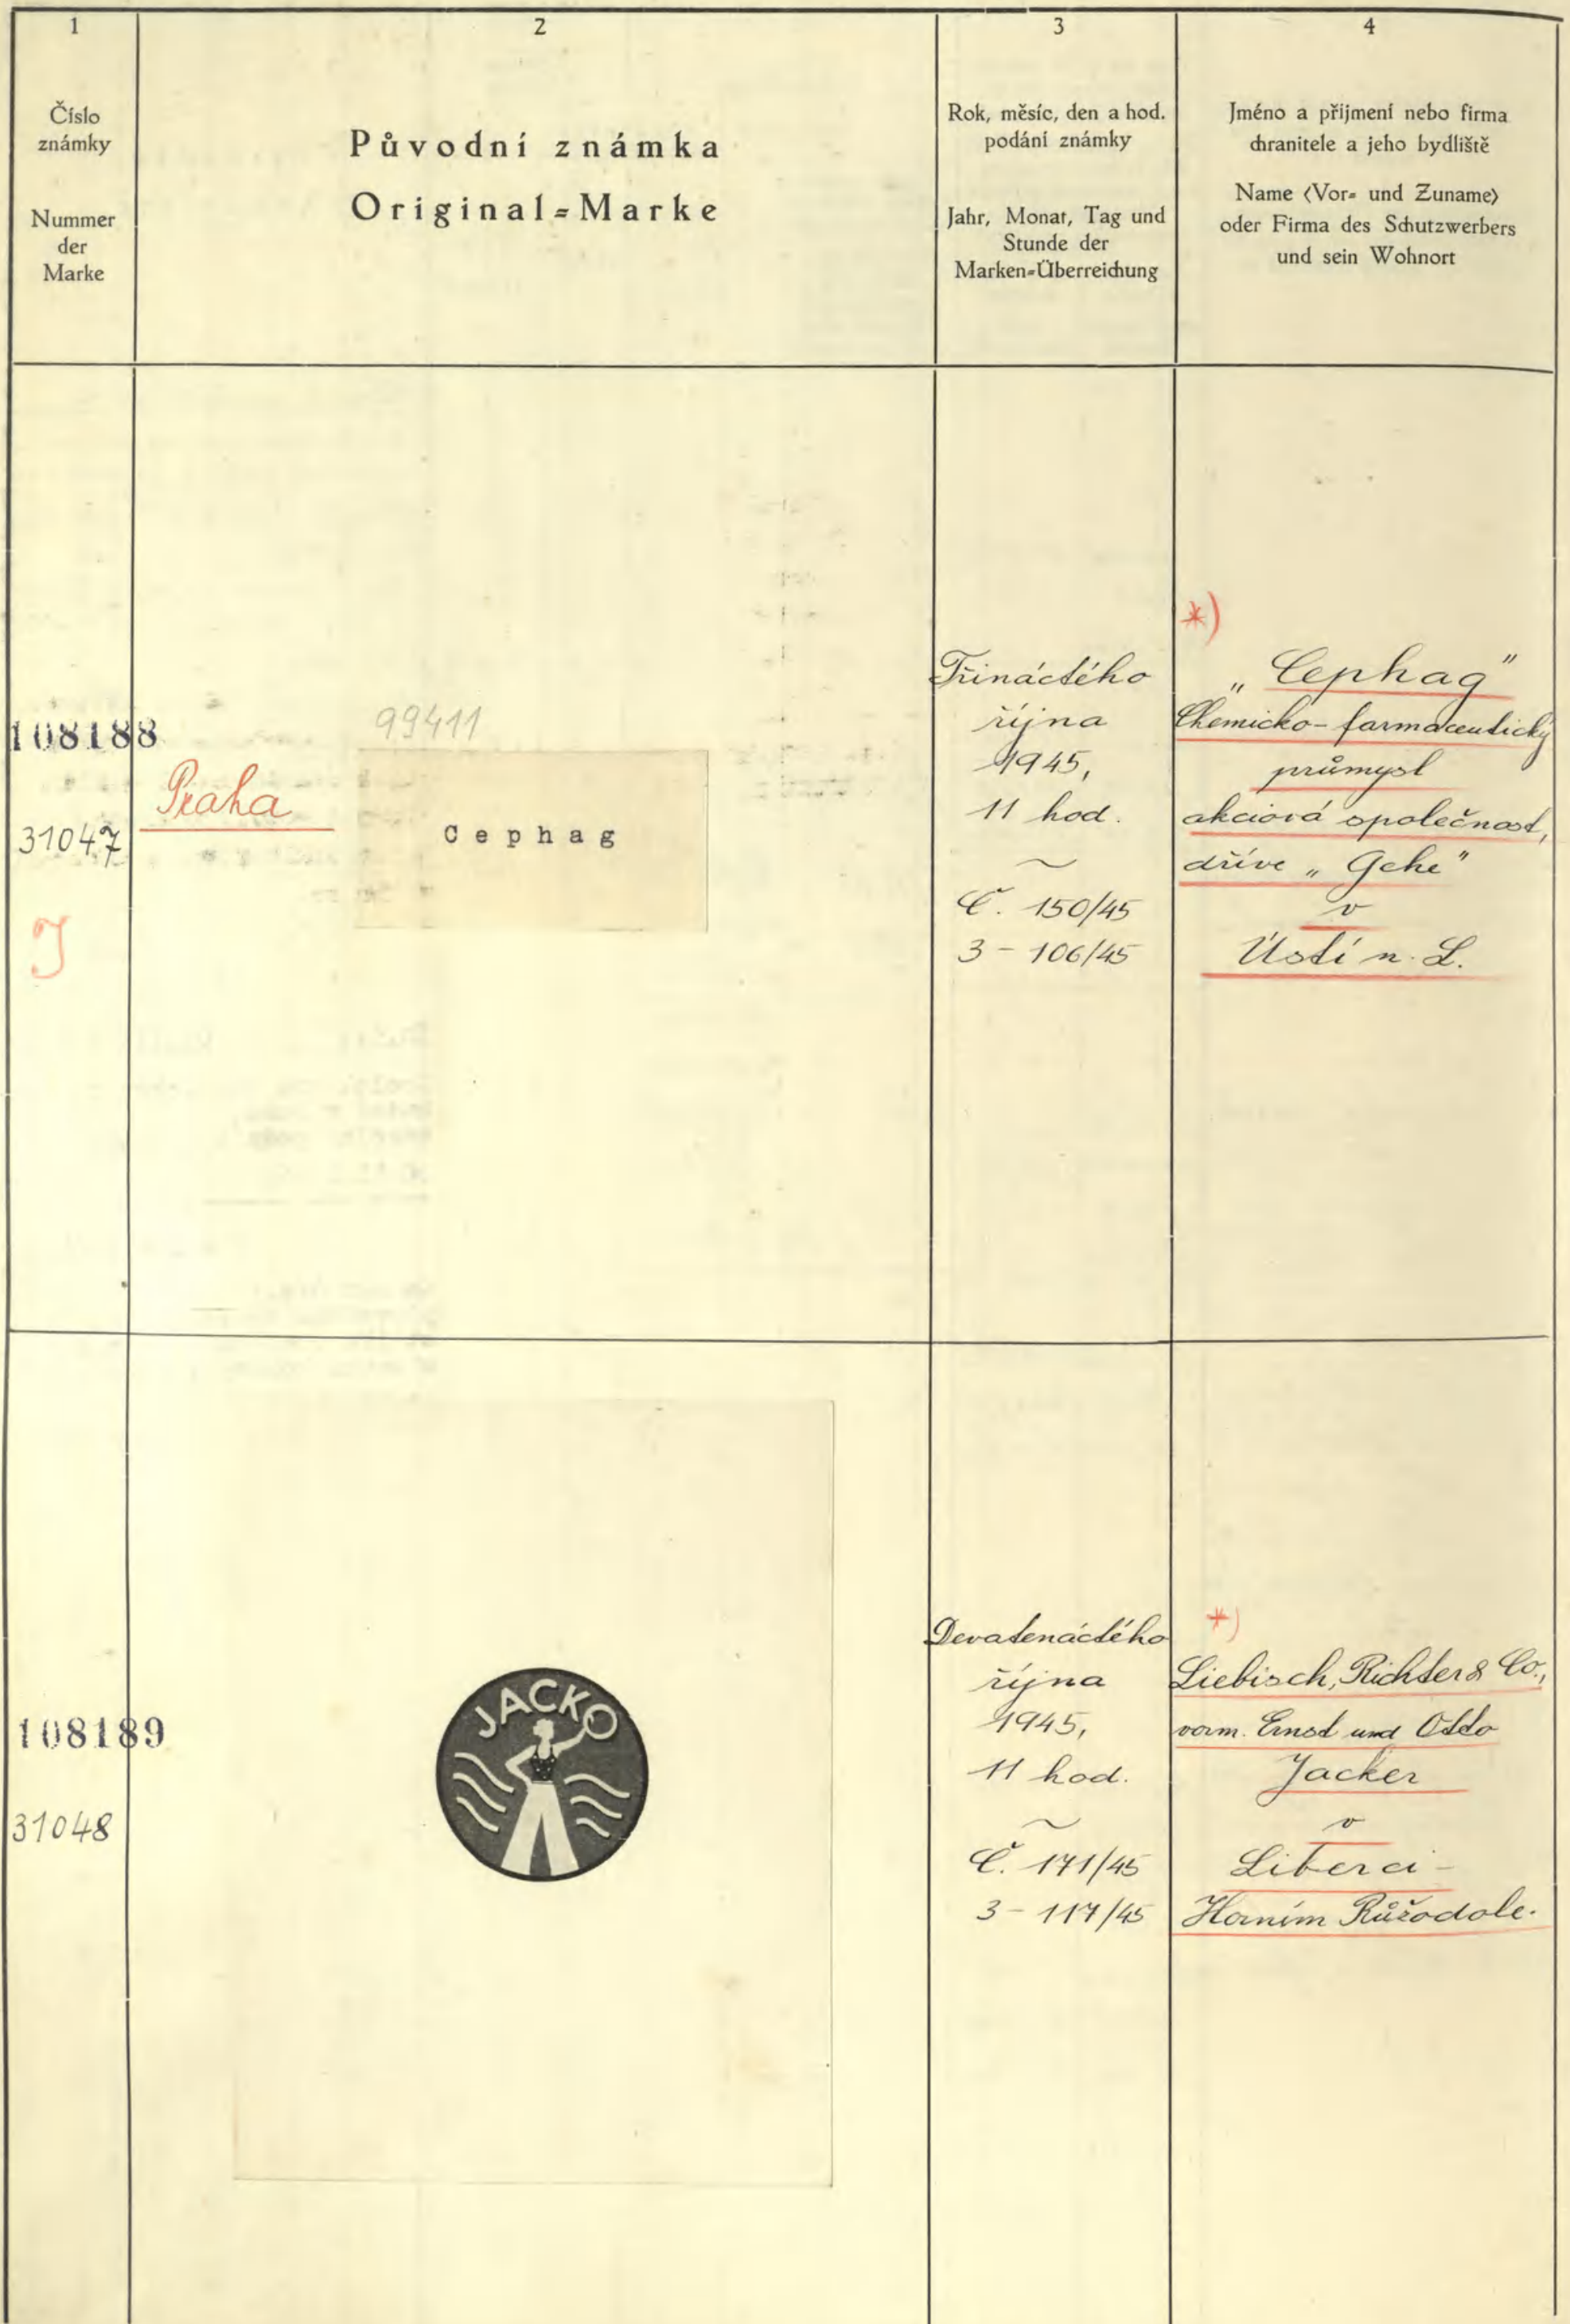 1
Číslo
známky
Nummer
der
Marke
2
Původní známka
Original=Marke
3
Rok, měsíc, den a hod.
podání známky
Jahr, Monat, Tag und
Stunde der
Marken=Überreichung
4
Jméno a přijmení nebo firma
chranitele a jeho bydliště
Name (Vor= und Zuname)
oder Firma des Schutzwerbers
und sein Wohnort
108188
31047
J
Praha
99411
Cephag
Třináctého
října
1945,
11 hod.
Č. 150/45
3 - 106/45
*)
„Cephag"
Chemicko-farmaceutický
průmysl
akciová společnost,
dříve „Gehe"
v
Ústí n. L.
108189
31048
JACKO
Devatenáctého
října
1945,
11 hod.
Č. 171/45
3 - 117/45
*)
Liebisch, Richter & Co.,
vorm. Ernst und Otto
Jacker
v
Liberci -
Horním Růžodole.